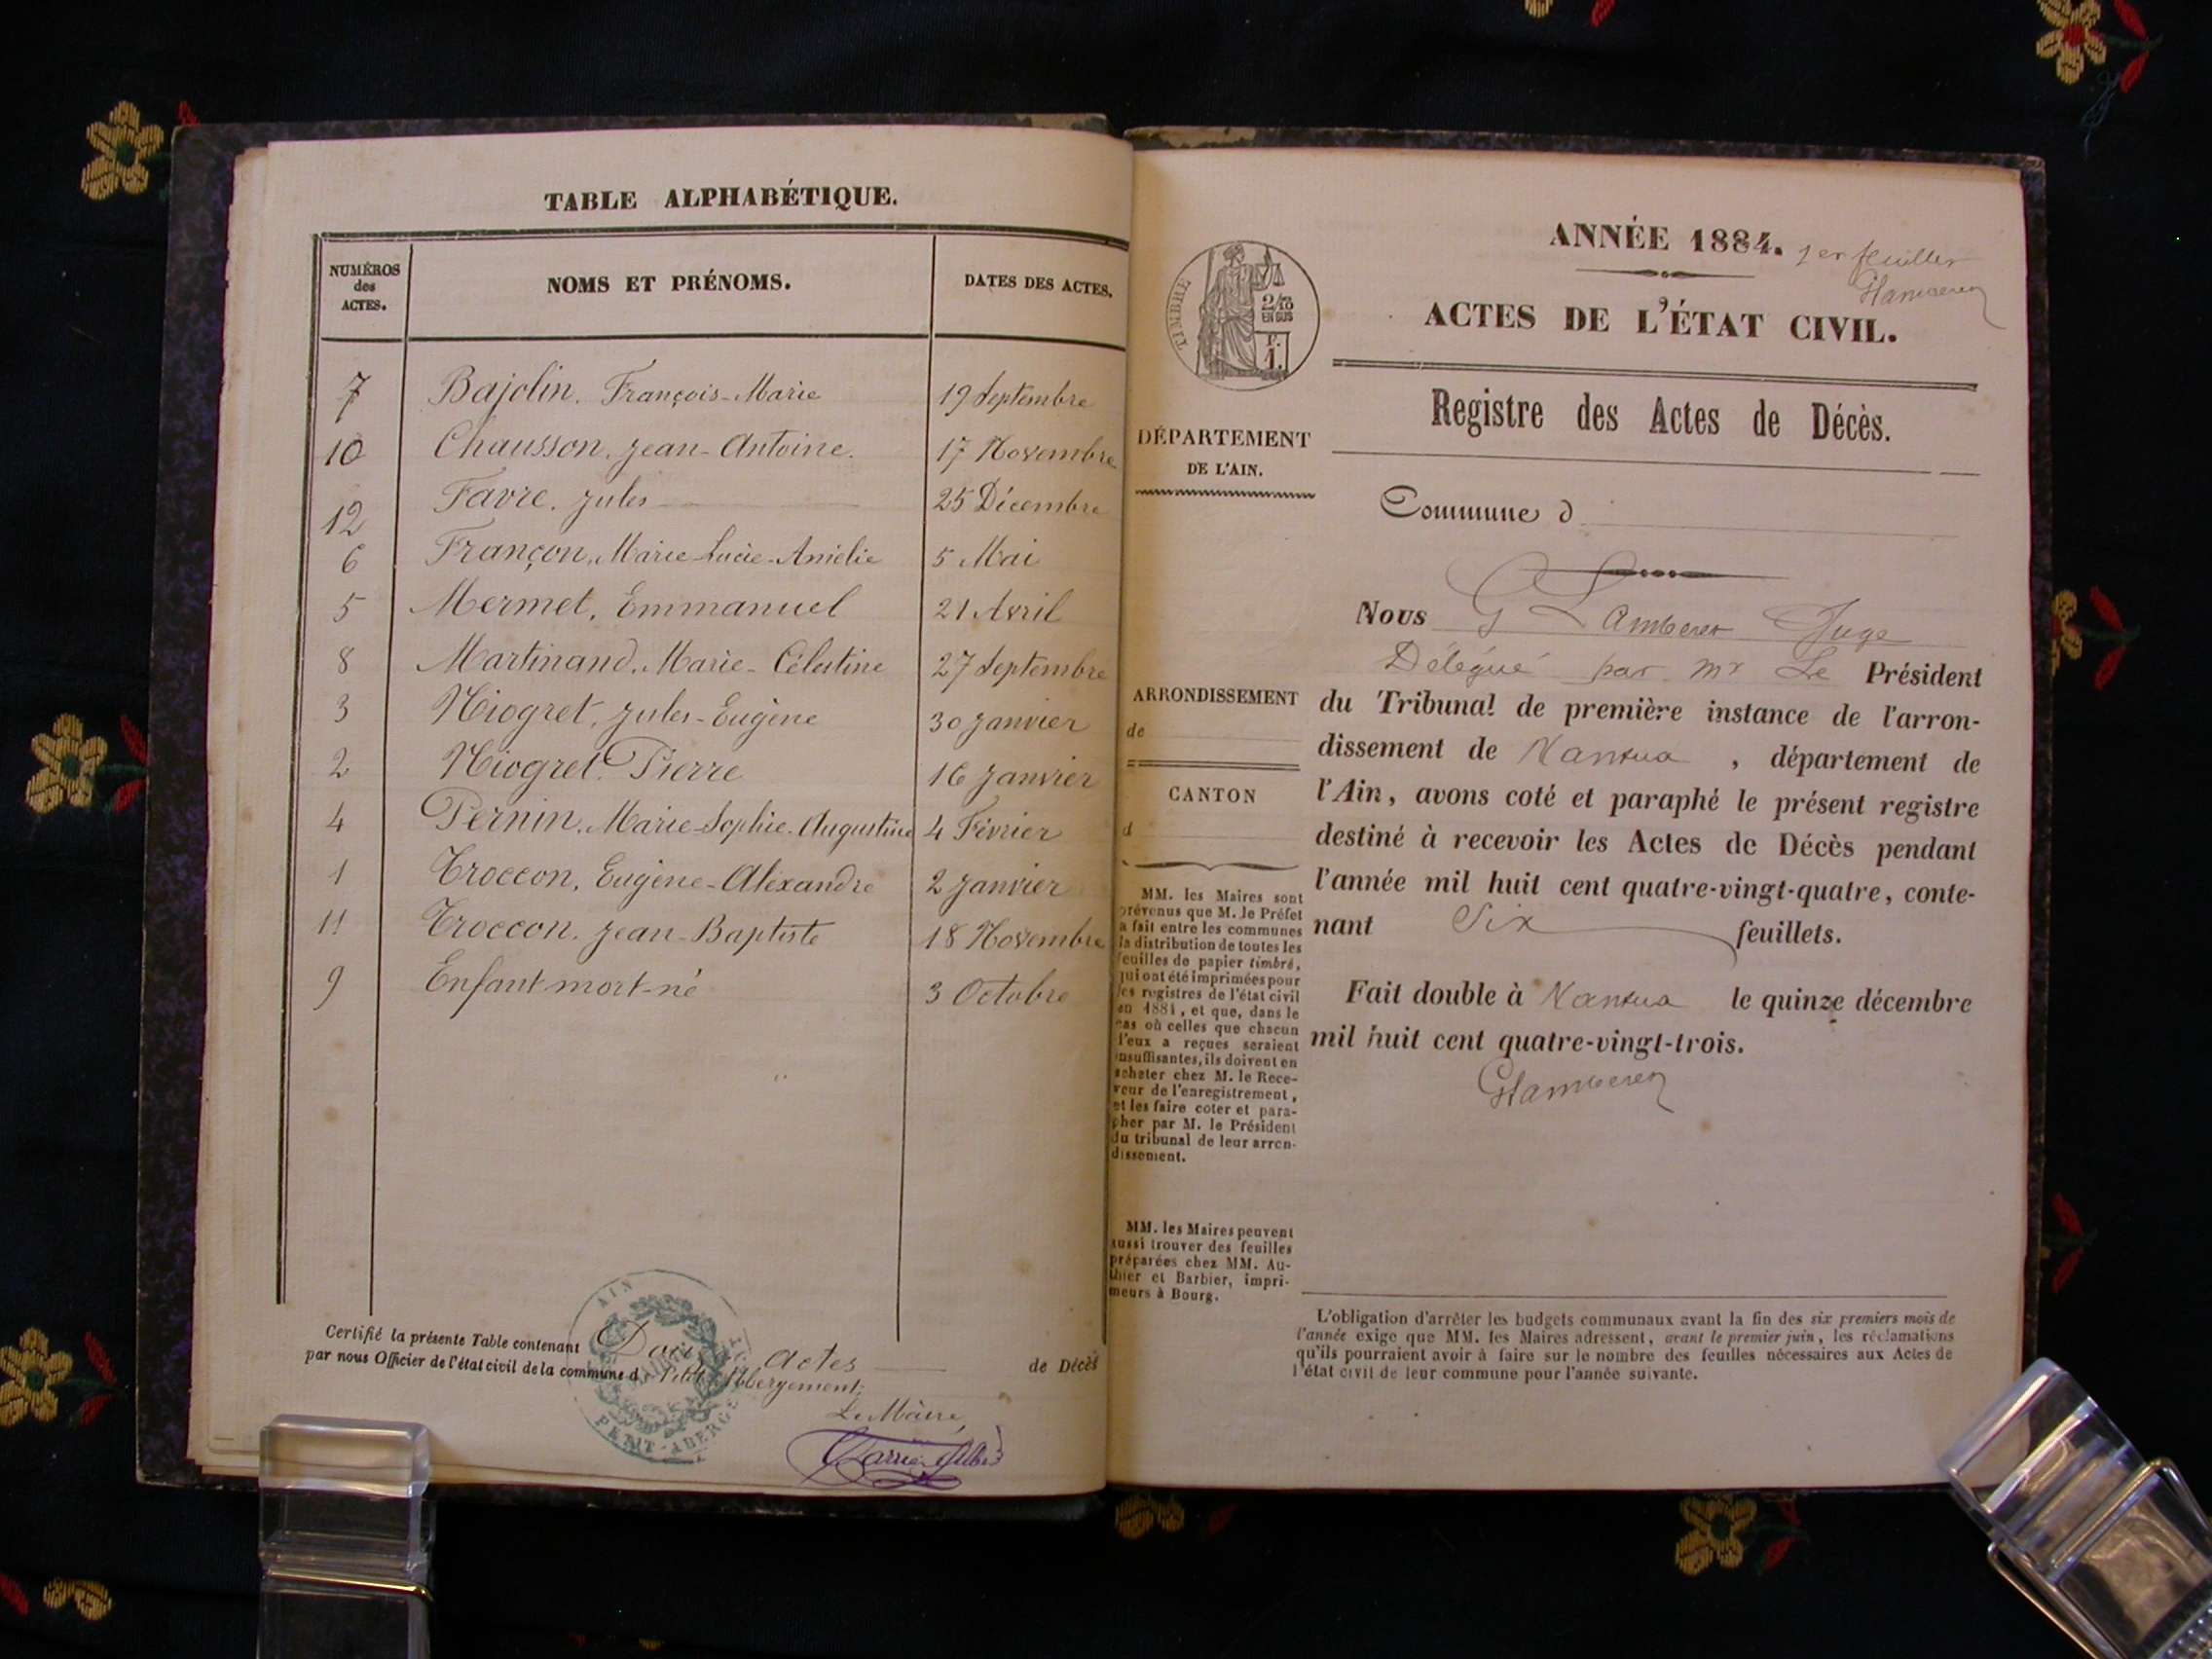 TABLE ALPHABÉTIQUE.
NUMÉROS des ACTES.
NOMS ET PRÉNOMS.
DATES DES ACTES.
7 Bajolin, François-Marie 19 Septembre
10 Chausson, Jean-Antoine. 17 Novembre
12 Favre, Jules 25 Décembre
6 Françon, Marie-Lucie-Amélie 5 Mai
5 Mermet, Emmanuel 21 Avril
8 Martinand, Marie-Célestine 27 Septembre
3 Niogret, Jules-Eugène 30 Janvier
2 Niogret Pierre 16 Janvier
4 Pernin, Marie-Sophie-Augustine 4 Février
1 Troccon, Eugène-Alexandre 2 Janvier
11 Troccon, Jean-Baptiste 18 Novembre
9 Enfant mort-né 3 Octobre
Certifié la présente Table contenant Douze Actes de Décès
par nous Officier de l'état civil de la commune d Petit-Abergement
Le Maire,
AIN
MAIRIE
PETIT-ABERGEMENT
ANNÉE 1884.
1er feuillet
ACTES DE L'ÉTAT CIVIL.
Registre des Actes de Décès.
TIMBRE
2/10
EN SUS
F.
1.
DÉPARTEMENT
DE L'AIN.
Commune d
Nous G Lamberet Juge
Délégué par Mr Le Président
du Tribunal de première instance de l'arron-
dissement de Nantua, département de
l'Ain, avons coté et paraphé le présent registre
destiné à recevoir les Actes de Décès pendant
l'année mil huit cent quatre-vingt-quatre, conte-
nant Six feuillets.
Fait double à Nantua le quinze décembre
mil huit cent quatre-vingt-trois.
GLamberet
ARRONDISSEMENT
de
CANTON
d
MM. les Maires sont
prévenus que M. le Préfet
a fait entre les communes
la distribution de toutes les
feuilles de papier timbré,
qui ont été imprimées pour
les registres de l'état civil
en 1884, et que, dans le
cas où celles que chacun
d'eux a reçues seraient
insuffisantes, ils doivent en
acheter chez M. le Rece-
veur de l'enregistrement,
et les faire coter et para-
pher par M. le Président
du tribunal de leur arron-
dissement.
MM. les Maires peuvent
aussi trouver des feuilles
préparées chez MM. Au-
thier et Barbier, impri-
meurs à Bourg.
L'obligation d'arrêter les budgets communaux avant la fin des six premiers mois de
l'année exige que MM. les Maires adressent, avant le premier juin, les réclamations
qu'ils pourraient avoir à faire sur le nombre des feuilles nécessaires aux Actes de
l'état civil de leur commune pour l'année suivante.